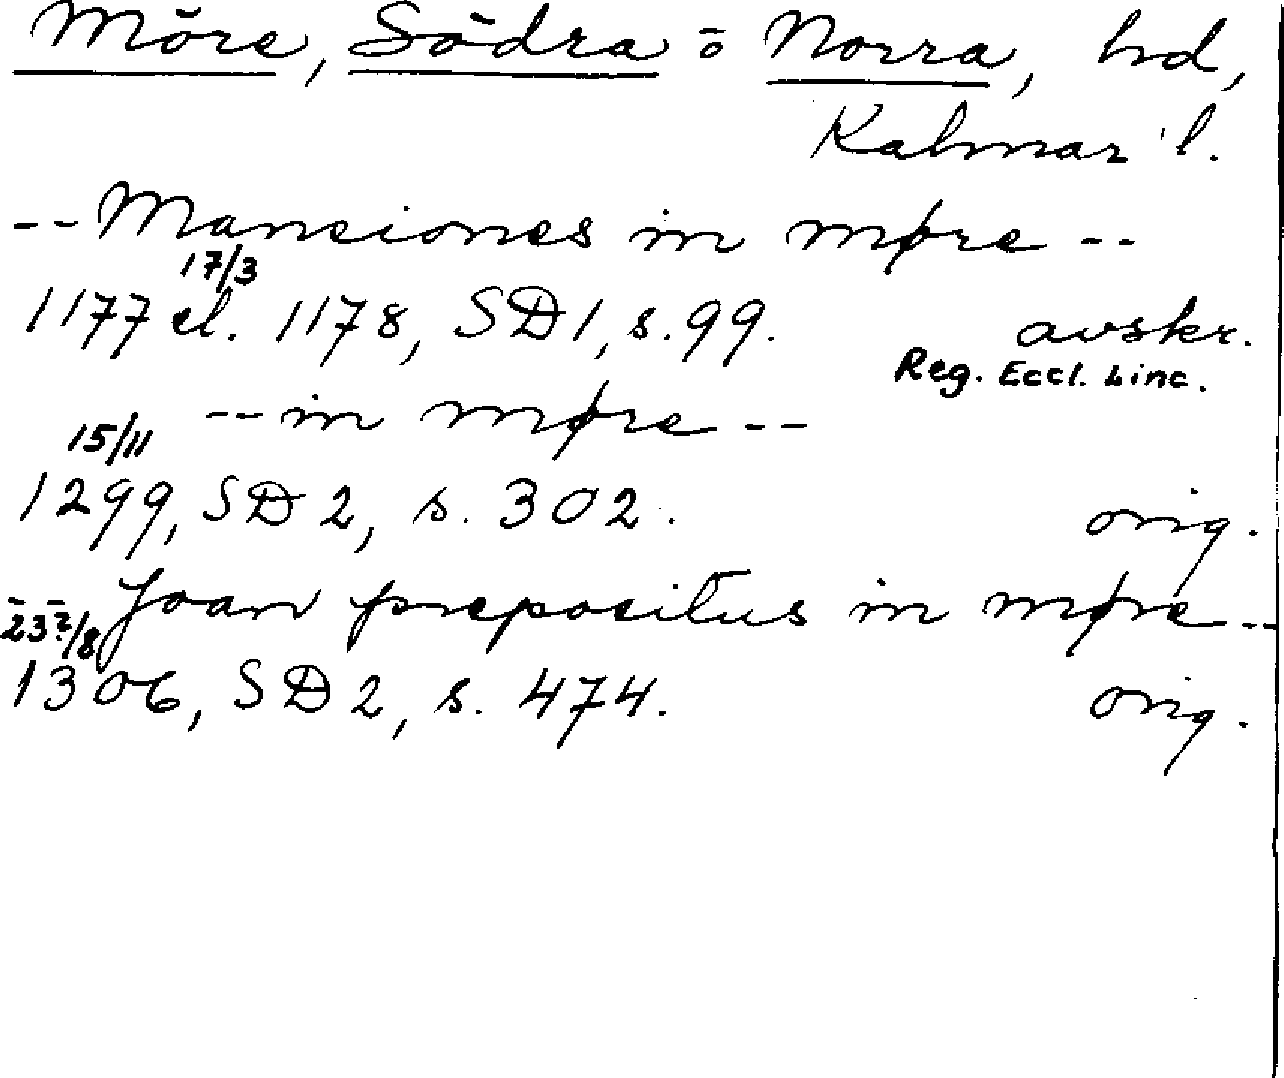 Möre, Södra o Norra, hd,
Kalmar l.
-- Mansiones in møre --
17/3
1177 el. 1178, SD 1, s. 99. avskr.
Reg. Eccl. Linc.
-- in møre --
15/11
1299, SD 2, s. 302. orig.
-- Joan prepositus in møre --
23?/8
1306, SD 2, s. 474. orig.